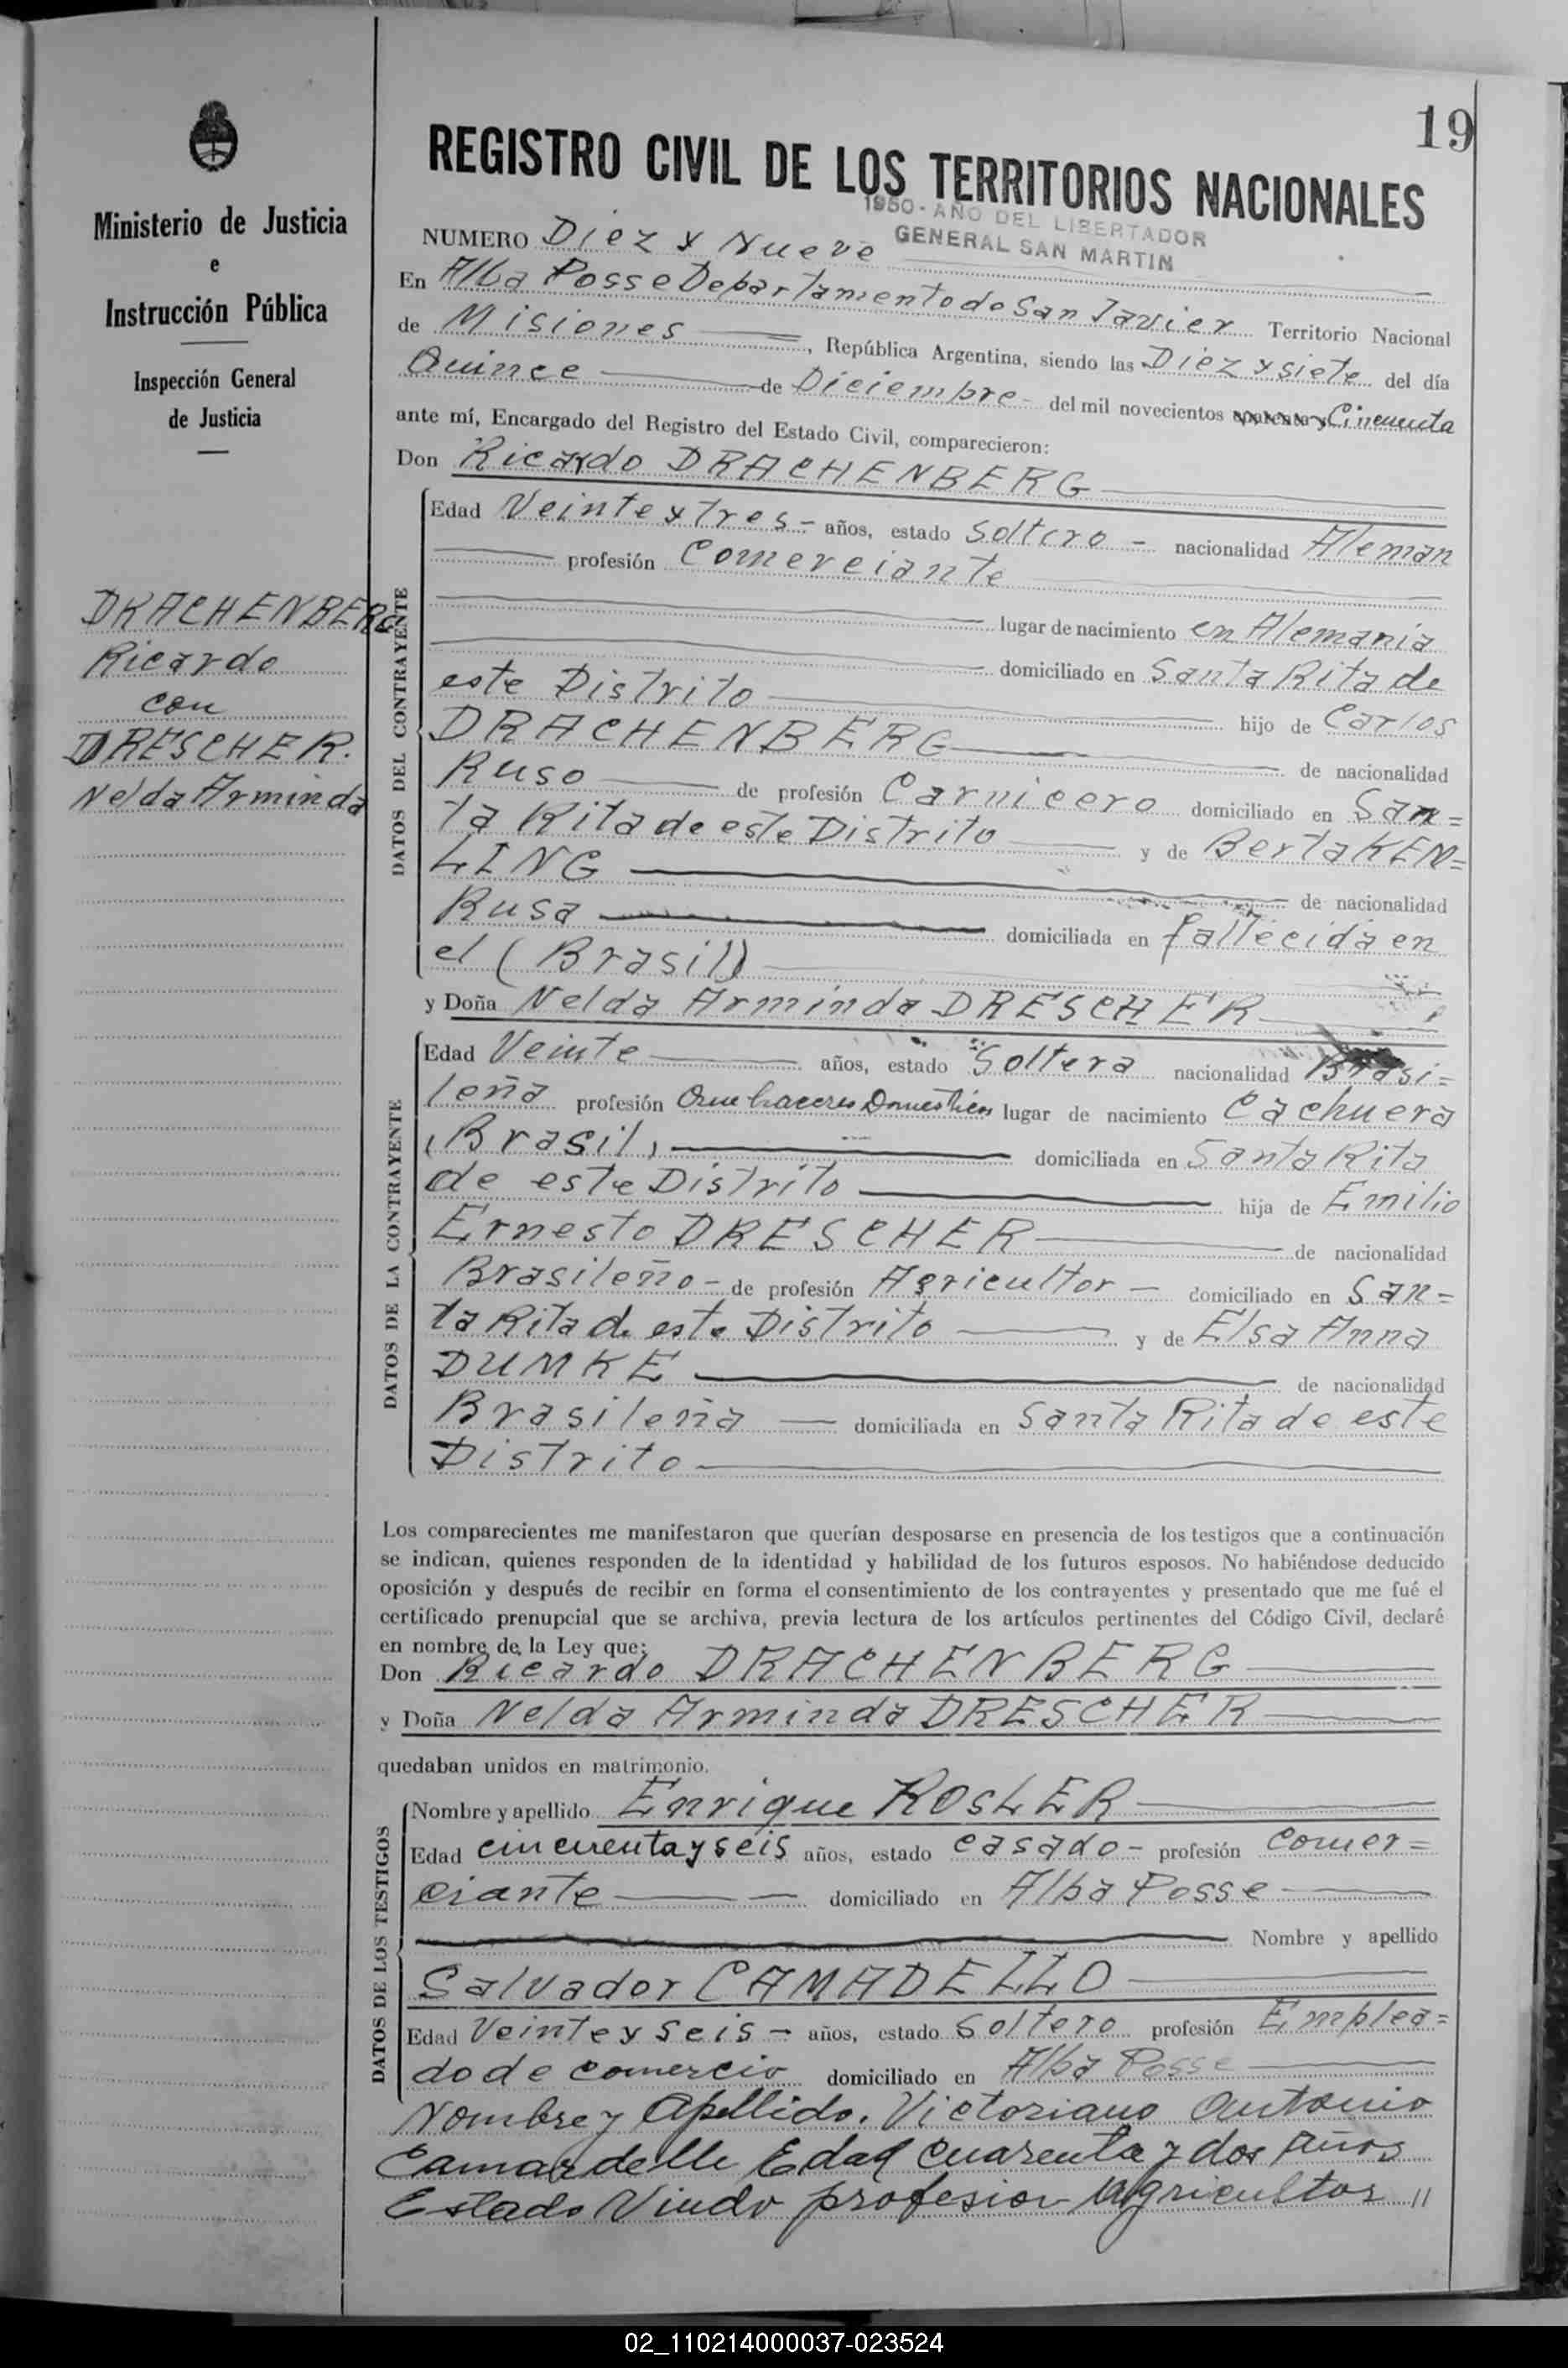 19
Ministerio de Justicia
e
Instrucción Pública
Inspección General
de Justicia
DRACHENBERG
Ricardo
con
DRESCHER.
Nelda Arminda
REGISTRO CIVIL DE LOS TERRITORIOS NACIONALES
1950 - AÑO DEL LIBERTADOR
GENERAL SAN MARTIN
NUMERO Diez y Nueve
En Alba Posse Departamento de San Javier Territorio Nacional
de Misiones, República Argentina, siendo las Diez y siete del día
Quince de Diciembre del mil novecientos Cincuenta
ante mí, Encargado del Registro del Estado Civil, comparecieron:
Don Ricardo DRACHENBERG
DATOS DEL CONTRAYENTE
Edad Veinte y Tres - años, estado Soltero - nacionalidad Aleman
profesión Comerciante
lugar de nacimiento en Alemania
domiciliado en Santa Rita de
este Distrito hijo de Carlos
DRACHENBERG de nacionalidad
Ruso de profesión Carnicero domiciliado en San=
ta Rita de este Distrito y de Berta KEN=
LING de nacionalidad
Rusa domiciliada en fallecida en
el (Brasil)
y Doña Nelda Arminda DRESCHER
DATOS DE LA CONTRAYENTE
Edad Veinte años, estado Soltera nacionalidad Brasi=
leña profesión Que haceres Domesticos lugar de nacimiento Cachuera
(Brasil) domiciliada en Santa Rita
de este Distrito hija de Emilio
Ernesto DRESCHER de nacionalidad
Brasileño - de profesión Agricultor - domiciliado en San=
ta Rita de este Distrito y de Elsa Anna
DUMKE de nacionalidad
Brasileña domiciliada en Santa Rita de este
Distrito
Los comparecientes me manifestaron que querían desposarse en presencia de los testigos que a continuación
se indican, quienes responden de la identidad y habilidad de los futuros esposos. No habiéndose deducido
oposición y después de recibir en forma el consentimiento de los contrayentes y presentado que me fué el
certificado prenupcial que se archiva, previa lectura de los artículos pertinentes del Código Civil, declaré
en nombre de la Ley que:
Don Ricardo DRACHENBERG
y Doña Nelda Arminda DRESCHER
quedaban unidos en matrimonio.
DATOS DE LOS TESTIGOS
Nombre y apellido Enrique ROSLER
Edad cincuenta y seis años, estado casado - profesión Comer=
ciante domiciliado en Alba Posse
Nombre y apellido
Salvador CAMADELLO
Edad Veinte y Seis - años, estado Soltero profesión Emplea=
do de comercio domiciliado en Alba Posse
Nombre y Apellido. Victoriano Antonio
Camardelle Edad Cuarenta y dos Años
Estado Viudo profesion Agricultor //
02_110214000037-023524